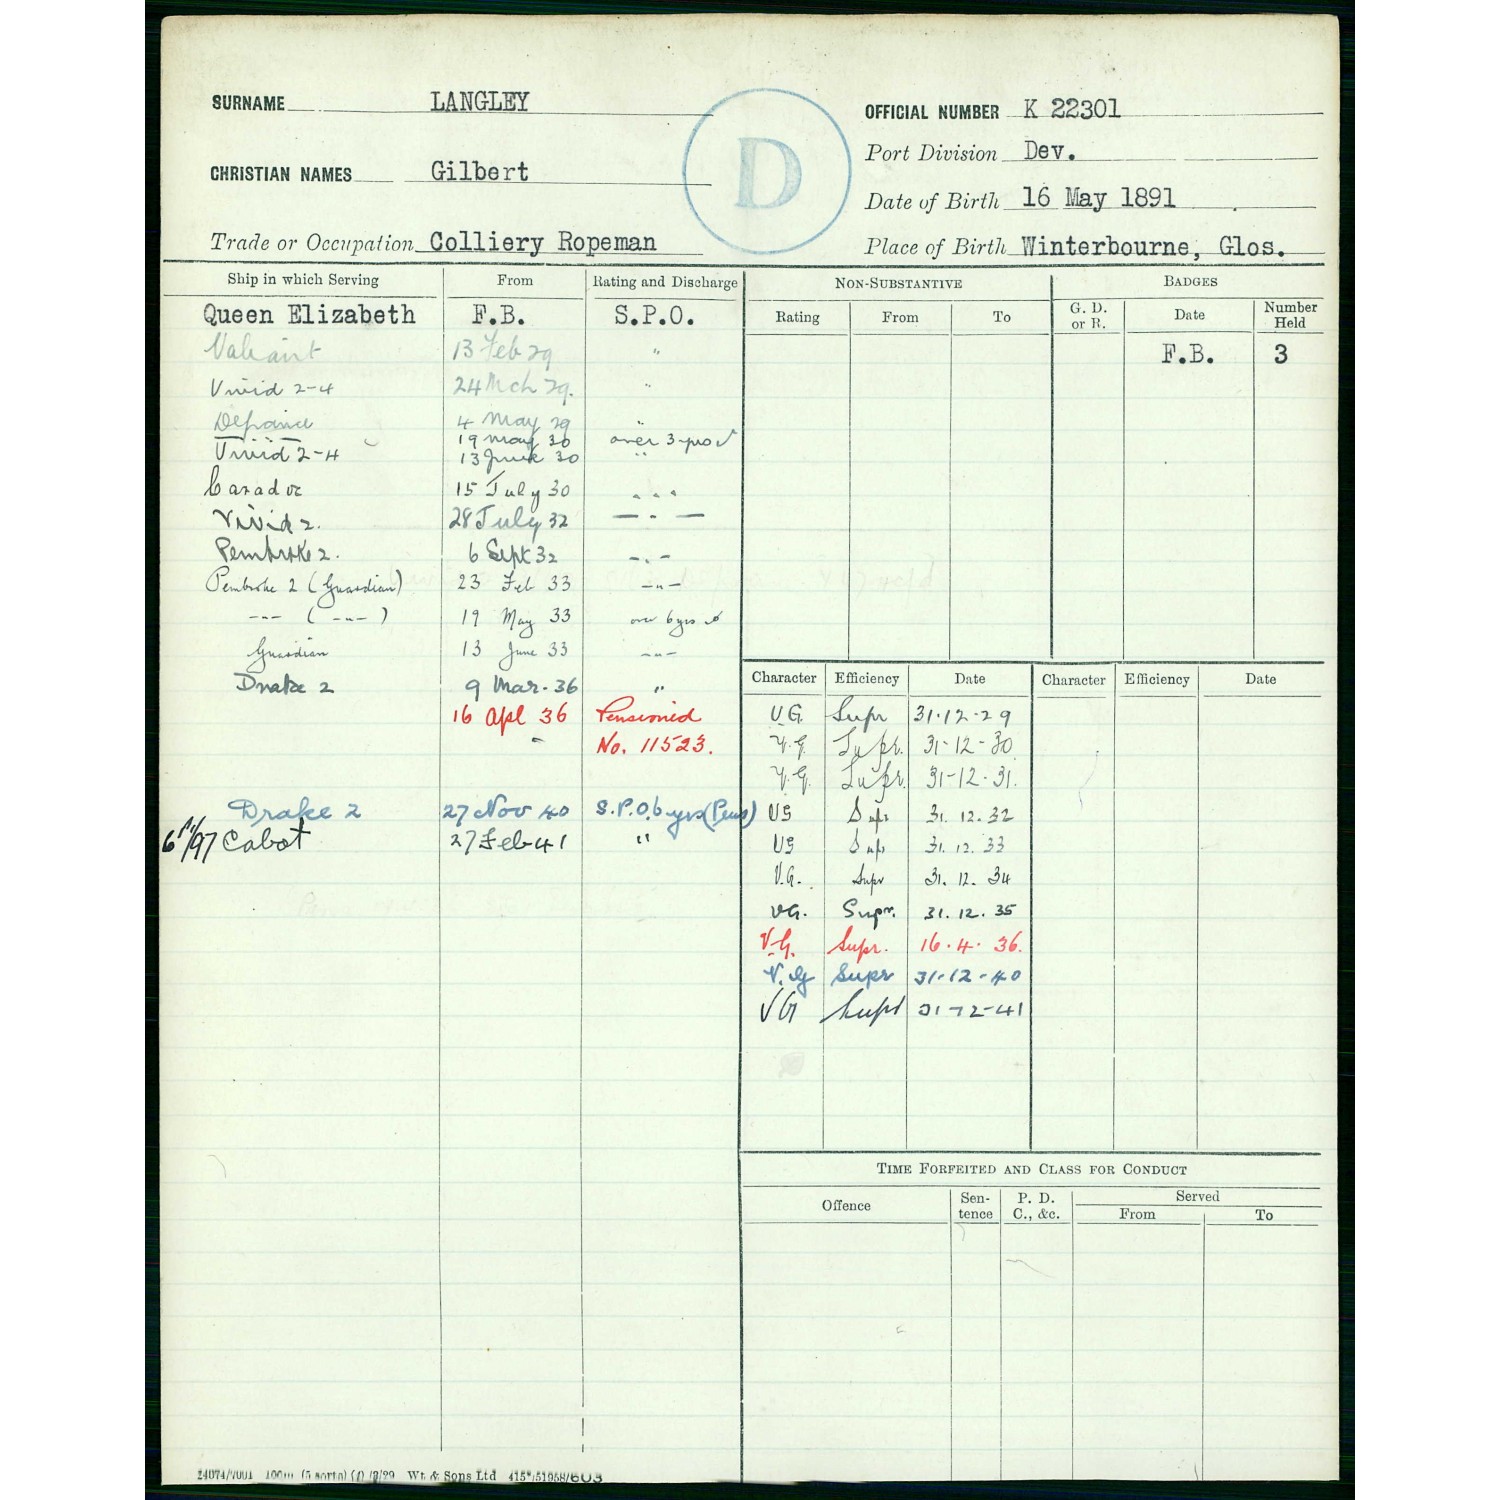 SURNAME LANGLEY
CHRISTIAN NAMES Gilbert
Trade or Occupation Colliery Ropeman
D
OFFICIAL NUMBER K 22301
Port Division Dev.
Date of Birth 16 May 1891
Place of Birth Winterbourne, Glos.
Ship in which Serving From Rating and Discharge
Queen Elizabeth F.B. S.P.O.
Valiant 13 Feb 29 "
Vivid 2-4 24 Mch 29. "
Defiance 4 May 29 "
19 May 30 over 3 yrs
Vivid 2-4 13 June 30 "
Caradoc 15 July 30 " " "
Vivid 2. 28 July 32 — " —
Pembroke 2. 6 Sept 32 - " -
Pembroke 2 (Guardian) 23 Feb 33 -"-
-"- (-"-) 19 May 33 over 6 yrs
Guardian 13 June 33 -"-
Drake 2 9 Mar. 36 "
16 Apl 36 Pensioned
No. 11523.
Drake 2 27 Nov 40 S.P.O. 6 yrs (Pens)
Cabot 27 Feb 41 "
NON-SUBSTANTIVE
Rating From To
BADGES
G. D. or R. Date Number Held
F.B. 3
Character Efficiency Date Character Efficiency Date
V.G. Supr 31.12.29
V.G. Supr. 31-12-30
V.G. Supr. 31-12-31.
VG Supr 31.12.32
VG Supr 31.12.33
V.G. Supr 31.12.34
VG. Supr. 31.12.35
V.G. Supr. 16.4.36.
V.G Supr 31-12-40
VG Supr 31-12-41
TIME FORFEITED AND CLASS FOR CONDUCT
Offence Sentence P. D. C., &c. Served
From To
Wt. & Sons Ltd